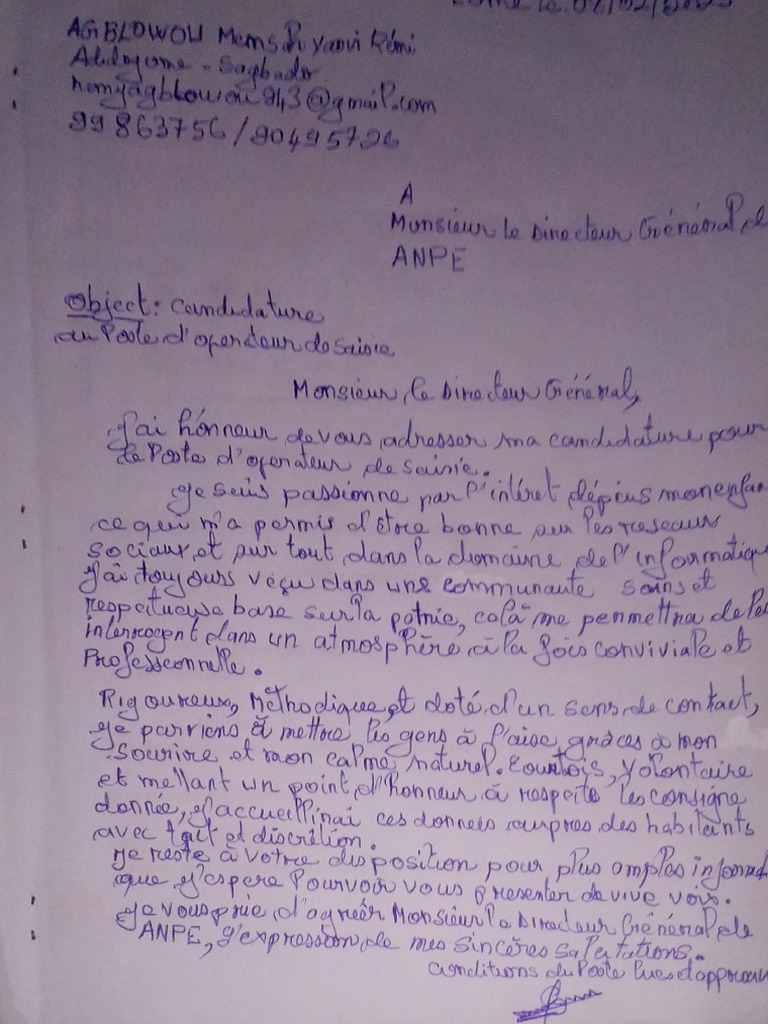 AGBLOWOU Mensah Yaovi Rémi
99863756 / 90495726
A
Monsieur le Directeur Général de
ANPE
Object: Candidature
au Poste d'operateur de saisie
Monsieur, le Directeur Général,
J'ai hónneur de vous adresser ma candidature pour
le Poste d'operateur de saisie.
Je suis passionne par l'intéret dépius mon enfan
ce qui m'a permis d'être bonne sur les reseaux
sociaux, et sur tout dans la domaine de l'informatiqu
J'ai toujours véçu dans une communaute sains et
respectueuse base sur la patrie, celà me permettra de les
interrogent dans un atmosphère à la fois conviviale et
Professionnelle.
Rigoureux, Méthodique, et doté d'un sens de contact,
Je parviens à mettre les gens à l'aise grâces à mon
sourire et mon calme naturel. Courtois, Volontaire
et mettant un point d'honneur à respeité les consigne
donnée, J'accueillirai ces données aupres des habitants
avec tact et discrétion.
Je reste à Votre disposition pour plus amples informat
que J'espere Pourvoir vous presenter de vive voix.
Je vous prie d'agréér Monsieur le Directeur Général de
ANPE, J'expression de mes sincères salutations.
Conditions du Poste lues d'approuv